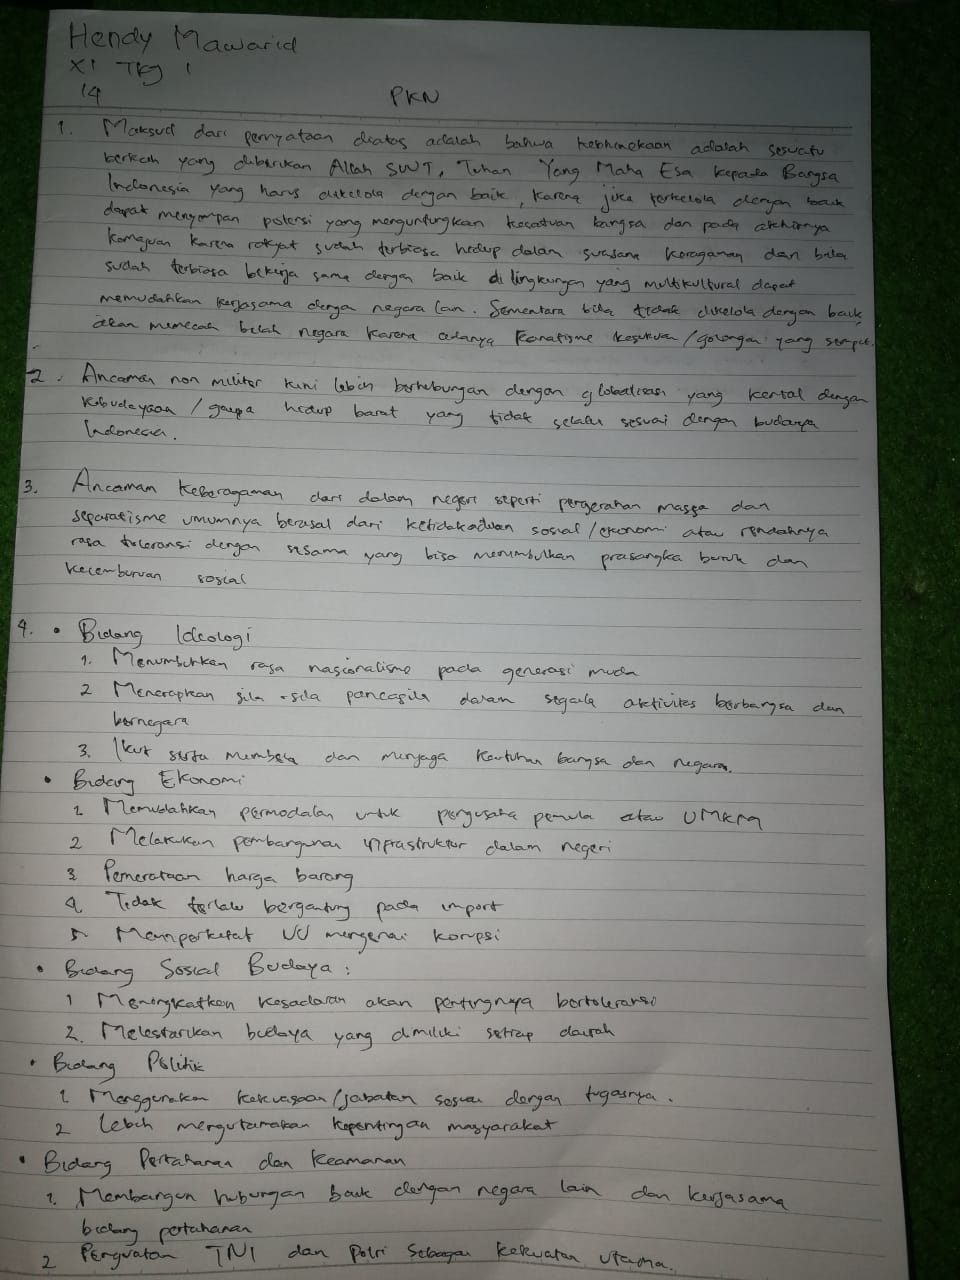 Hendy Mawarid
XI TKJ 1
14
PKN
1. Maksud dari pernyataan diatas adalah bahwa kebhinekaan adalah sesuatu
berkah yang diberikan Allah SWT, Tuhan Yang Maha Esa kepada Bangsa
Indonesia yang harus dikelola dengan baik, karena jika terkelola dengan baik
dapat menyimpan potensi yang menguntungkan kesatuan bangsa dan pada akhirnya
kemajuan karena rakyat sudah terbiasa hidup dalam suasana keragaman dan bila
sudah terbiasa bekerja sama dengan baik di lingkungan yang multikultural dapat
memudahkan kerjasama dengan negara lain. Sementara bila tidak dikelola dengan baik,
akan memecah belah negara karena adanya fanatisme kesukuan/golongan yang sempit.
2. Ancaman non militer kini lebih berhubungan dengan globalisasi yang kental dengan
kebudayaan / gaya hidup barat yang tidak selalu sesuai dengan budaya
Indonesia.
3. Ancaman keberagaman dari dalam negeri seperti pergerakan massa dan
separatisme umumnya berasal dari ketidakadilan sosial/ekonomi atau rendahnya
rasa toleransi dengan sesama yang bisa menimbulkan prasangka buruk dan
kecemburuan sosial
4. • Bidang Ideologi
1. Menumbuhkan rasa nasionalisme pada generasi muda
2 Menerapkan sila-sila pancasila dalam segala aktivitas berbangsa dan
bernegara
3. Ikut serta membela dan menjaga keutuhan bangsa dan negara.
• Bidang Ekonomi
1 Memudahkan permodalan untuk pengusaha pemula atau UMKM
2 Melakukan pembangunan infrastruktur dalam negeri
3 Pemerataan harga barang
4 Tidak terlalu bergantung pada import
5. Memperketat UU mengenai korupsi
• Bidang Sosial Budaya :
1 Meningkatkan kesadaran akan pentingnya bertoleransi
2. Melestarikan budaya yang dimiliki setiap daerah
• Bidang Politik
1. Menggunakan kekuasaan/jabatan sesuai dengan tugasnya.
2 Lebih mengutamakan kepentingan masyarakat
• Bidang Pertahanan dan Keamanan
1. Membangun hubungan baik dengan negara lain dan kerjasama
bidang pertahanan
2 Penguatan TNI dan Polri sebagai kekuatan utama.